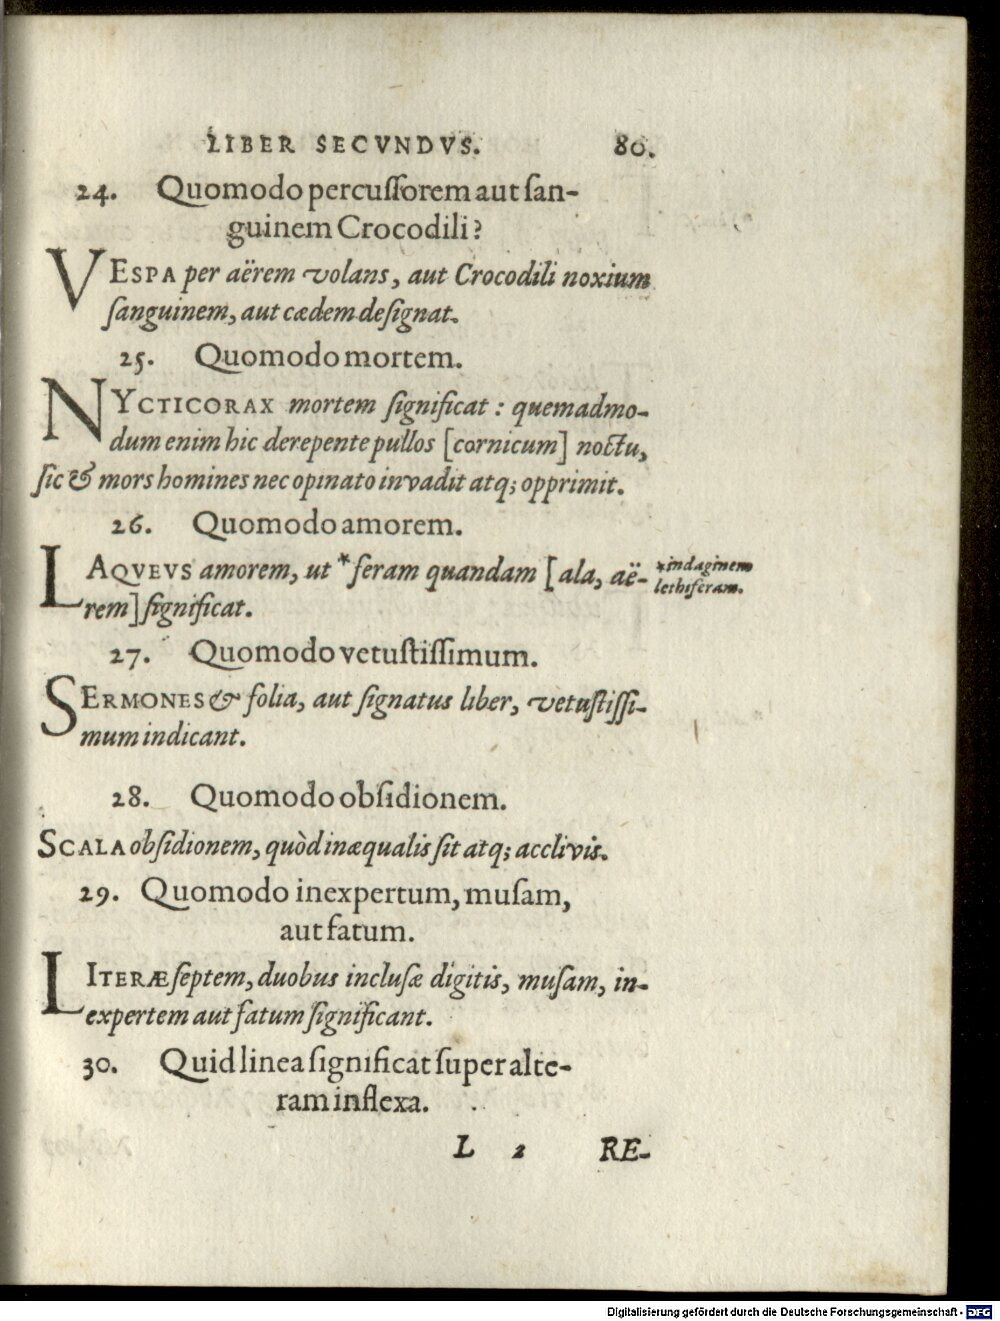 LIBER SECVNDVS. 80.
24. Quomodo percuſſorem aut ſan-
guinem Crocodili?
VESPA per aërem volans, aut Crocodili noxium
ſanguinem, aut cædem deſignat.
25. Quomodo mortem.
NYCTICORAX mortem ſignificat : quemadmo-
dum enim hic derepente pullos [cornicum] noctu,
ſic & mors homines nec opinato invadit atq; opprimit.
26. Quomodo amorem.
LAQVEVS amorem, ut *feram quandam [ala, aë-
*indaginem
lethiferam.
rem] ſignificat.
27. Quomodo vetuſtiſſimum.
SERMONES & folia, aut ſignatus liber, vetuſtiſſi-
mum indicant.
28. Quomodo obſidionem.
SCALA obſidionem, quòd inæqualis ſit atq; acclivis.
29. Quomodo inexpertum, muſam,
aut fatum.
LITERÆ ſeptem, duobus incluſæ digitis, muſam, in-
expertem aut fatum ſignificant.
30. Quid linea ſignificat ſuper alte-
ram inflexa.
L 2 RE-
Digitalisierung gefördert durch die Deutsche Forschungsgemeinschaft - DFG